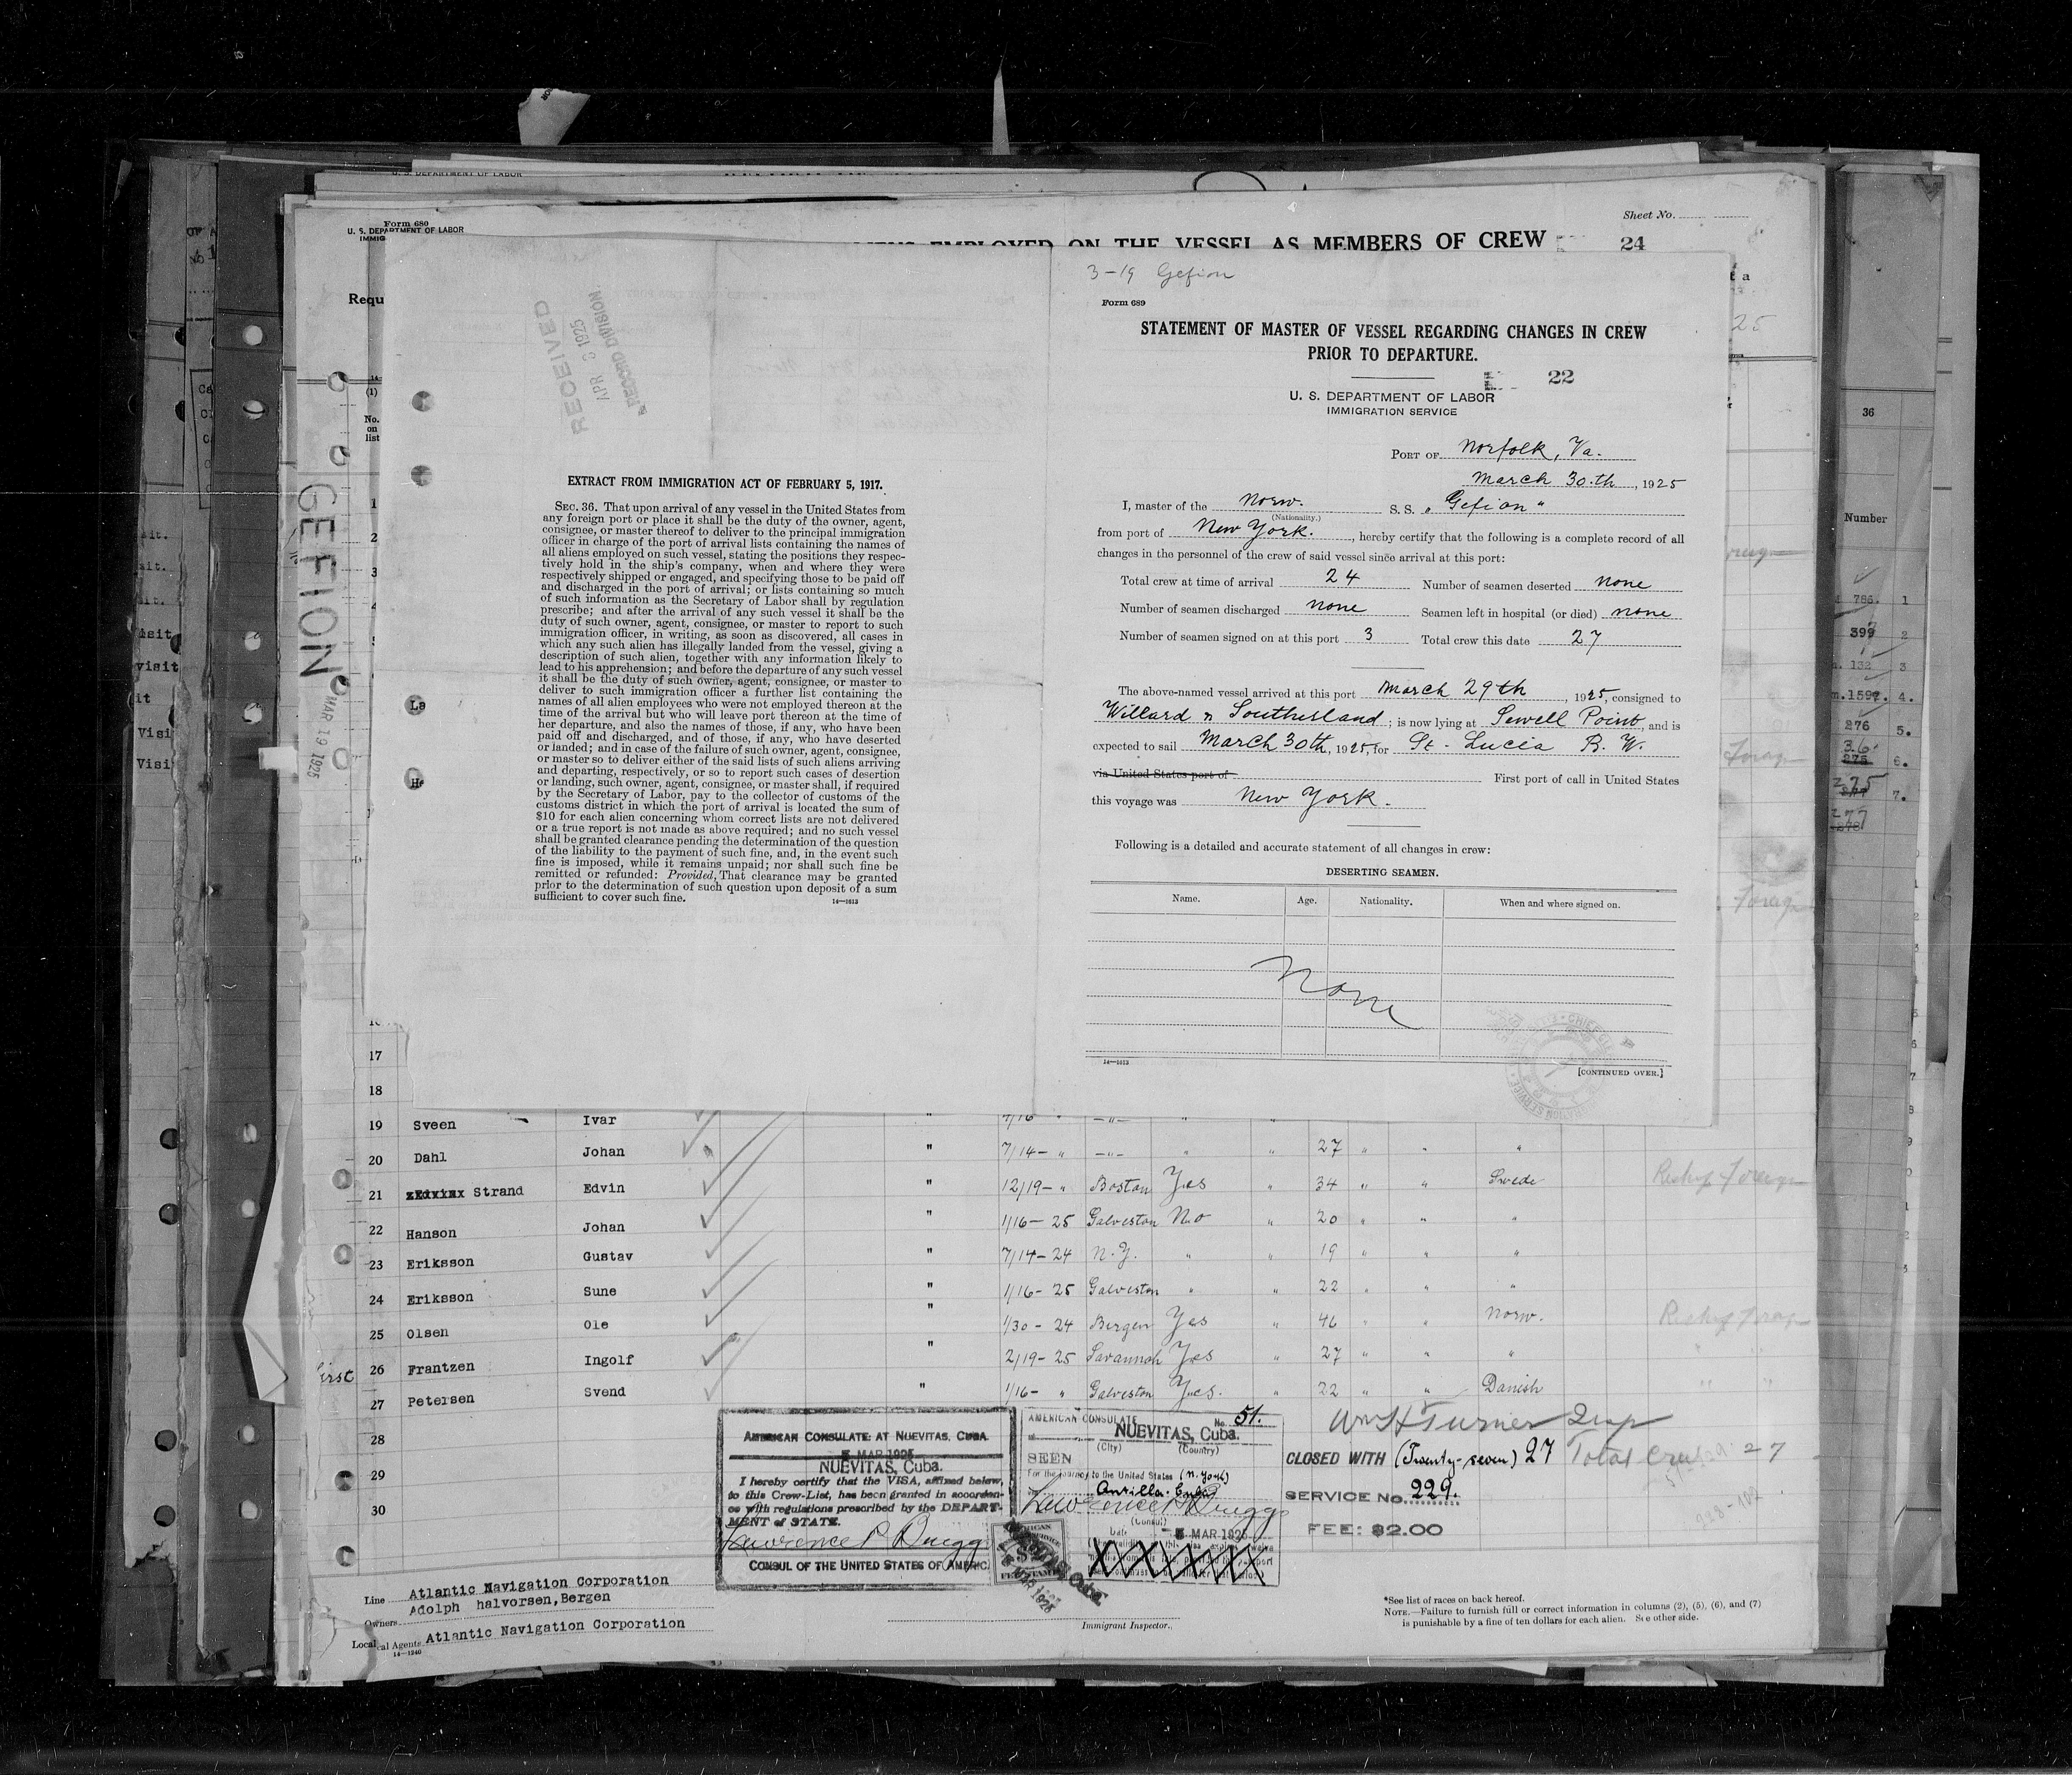 U. S. DEPARTMENT OF LABOR
Form 689
U. S. DEPARTMENT OF LABOR
IMMIG
Sheet No.
EMPLOYED ON THE VESSEL AS MEMBERS OF CREW
24
Requ
(1)
No.
on
list
"GEFION
MAR 19 1925
RECEIVED
APR 3 1925
RECORD DIVISION
EXTRACT FROM IMMIGRATION ACT OF FEBRUARY 5, 1917.
SEC. 36. That upon arrival of any vessel in the United States from
any foreign port or place it shall be the duty of the owner, agent,
consignee, or master thereof to deliver to the principal immigration
officer in charge of the port of arrival lists containing the names of
all aliens employed on such vessel, stating the positions they respec-
tively hold in the ship's company, when and where they were
respectively shipped or engaged, and specifying those to be paid off
and discharged in the port of arrival; or lists containing so much
of such information as the Secretary of Labor shall by regulation
prescribe; and after the arrival of any such vessel it shall be the
duty of such owner, agent, consignee, or master to report to such
immigration officer, in writing, as soon as discovered, all cases in
which any such alien has illegally landed from the vessel, giving a
description of such alien, together with any information likely to
lead to his apprehension; and before the departure of any such vessel
it shall be the duty of such owner, agent, consignee, or master to
deliver to such immigration officer a further list containing the
names of all alien employees who were not employed thereon at the
time of the arrival but who will leave port thereon at the time of
her departure, and also the names of those, if any, who have been
paid off and discharged, and of those, if any, who have deserted
or landed; and in case of the failure of such owner, agent, consignee,
or master so to deliver either of the said lists of such aliens arriving
and departing, respectively, or so to report such cases of desertion
or landing, such owner, agent, consignee, or master shall, if required
by the Secretary of Labor, pay to the collector of customs of the
customs district in which the port of arrival is located the sum of
$10 for each alien concerning whom correct lists are not delivered
or a true report is not made as above required; and no such vessel
shall be granted clearance pending the determination of the question
of the liability to the payment of such fine, and, in the event such
fine is imposed, while it remains unpaid; nor shall such fine be
remitted or refunded: Provided, That clearance may be granted
prior to the determination of such question upon deposit of a sum
sufficient to cover such fine.
14—1613
3-19 Gefion
Form 689
STATEMENT OF MASTER OF VESSEL REGARDING CHANGES IN CREW
PRIOR TO DEPARTURE.
22
U. S. DEPARTMENT OF LABOR
IMMIGRATION SERVICE
PORT OF Norfolk, Va.
March 30.th, 1925
I, master of the Norw. S. S. "Gefion"
(Nationality.)
from port of New York., hereby certify that the following is a complete record of all
changes in the personnel of the crew of said vessel since arrival at this port:
Total crew at time of arrival 24 Number of seamen deserted none
Number of seamen discharged none Seamen left in hospital (or died) none
Number of seamen signed on at this port 3 Total crew this date 27
The above-named vessel arrived at this port March 29th, 1925, consigned to
Willard n Southerland; is now lying at Sewell Point, and is
expected to sail March 30th, 1925, for St. Lucia B. W.
via United States port of First port of call in United States
this voyage was New York.
Following is a detailed and accurate statement of all changes in crew:
DESERTING SEAMEN.
Name. Age. Nationality. When and where signed on.
None
14—1613
[CONTINUED OVER.]
36
Number
786. 1
399 2
132 3
159 4.
276 5.
36. 6.
275 7.
277
17
18
19 Sveen Ivar 7/16 " —"— " "
20 Dahl Johan " 7/14- " —"— " " 27 " " "
21 Strand Edvin " 12/19- " Boston Yes " 34 " " Swede Reship foreign
22 Hanson Johan " 1/16- 25 Galveston No " 20 " " "
23 Eriksson Gustav " 7/14- 24 N.Y. " " 19 " " "
24 Eriksson Sune " 1/16- 25 Galveston " " 22 " " "
25 Olsen Ole " 1/30- 24 Bergen Yes " 46 " " Norw. Reship foreign
first 26 Frantzen Ingolf " 2/19- 25 Savannah Yes " 27 " " "
27 Petersen Svend " 1/16- " Galveston Yes. " 22 " " Danish
28
29
30
AMERICAN CONSULATE: AT NUEVITAS, CUBA.
5 MAR 1925
NUEVITAS, Cuba.
I hereby certify that the VISA, affixed below,
to this Crew-List, has been granted in accordan-
ce with regulations prescribed by the DEPART-
MENT of STATE.
Lawrence P. Briggs
CONSUL OF THE UNITED STATES OF AMERIC.
AMERICAN CONSULATE No. 51.
NUEVITAS, Cuba.
(City) (Country)
SEEN
For the journey to the United States (N. York)
Antilla. Cuba
Lawrence P. Briggs
(Consul)
Date 5 MAR 1925
Wm H Turner Insp
CLOSED WITH (Twenty-seven) 27 Total Crew 27
SERVICE No. 229.
FEE: $2.00
Line Atlantic Navigation Corporation
Owners Adolph halvorsen, Bergen
Local Agents Atlantic Navigation Corporation
14—1240
Immigrant Inspector.
*See list of races on back hereof.
NOTE.—Failure to furnish full or correct information in columns (2), (5), (6), and (7)
is punishable by a fine of ten dollars for each alien. See other side.